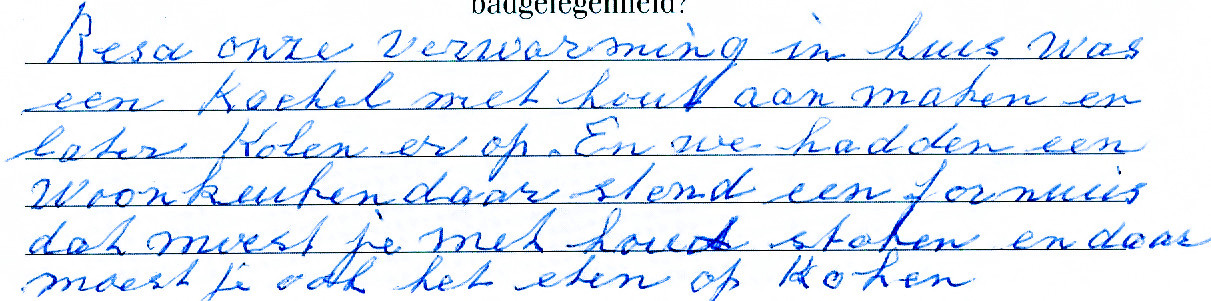 badgelegenheid?
Resa onze verwarming in huis was
een Kachel met hout aan maken en
later Kolen er op. En we hadden een
woonkeuken daar stond een fornuis
dat moest je met houdt stoken en daar
moest je ook het eten op Koken